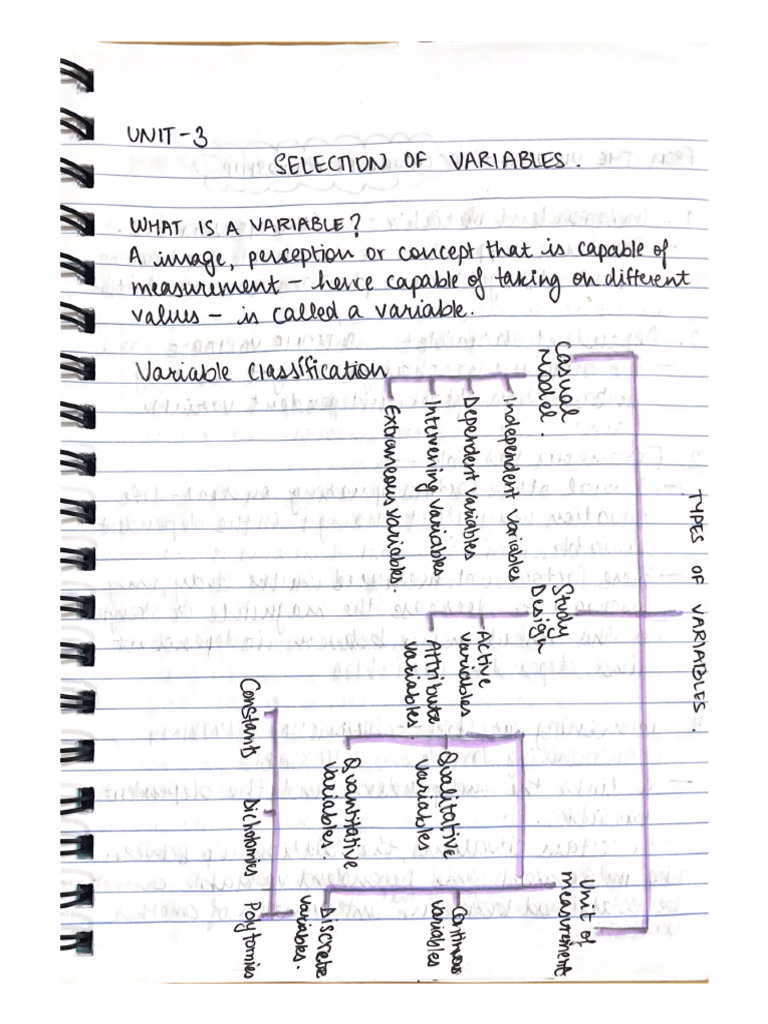 UNIT-3
SELECTION OF VARIABLES.
WHAT IS A VARIABLE?
A image, perception or concept that is capable of
measurement - hence capable of taking on different
values - is called a variable.
Variable classification
TYPES OF VARIABLES.
Casual
Model.
Independent variables
Dependent variables
Intervening variables
Extraneous variables.
Study
Design
Active
variables
Attribute
variables.
Unit of
measurement
Qualitative
variables
Quantitative
variables
Continuous
variables
Discrete
variables.
Constants
Dichotomies
Polytomies